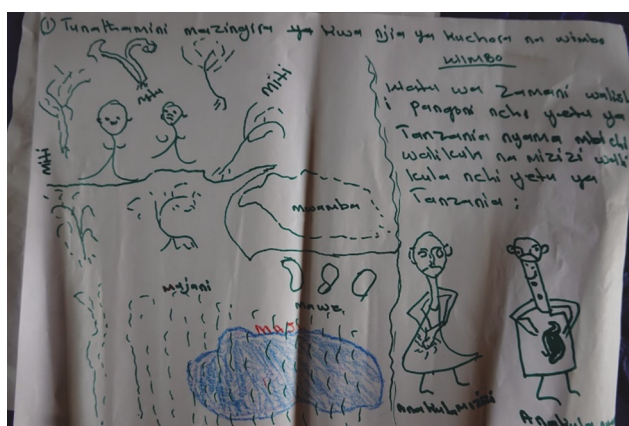 ① Tunathamini mazingira ya kwa njia ya kuchora na wimbo
WIMBO
Watu wa Zamani walish
i Pangoni nchi yetu ya
Tanzania nyama mbichi
walikuh na mizizi wali
kula nchi yetu ya
Tanzania;
Miti
Miti
Miti
Mwamba
Majani
Mawe
MAJI
Anakula Mizizi
Anakula